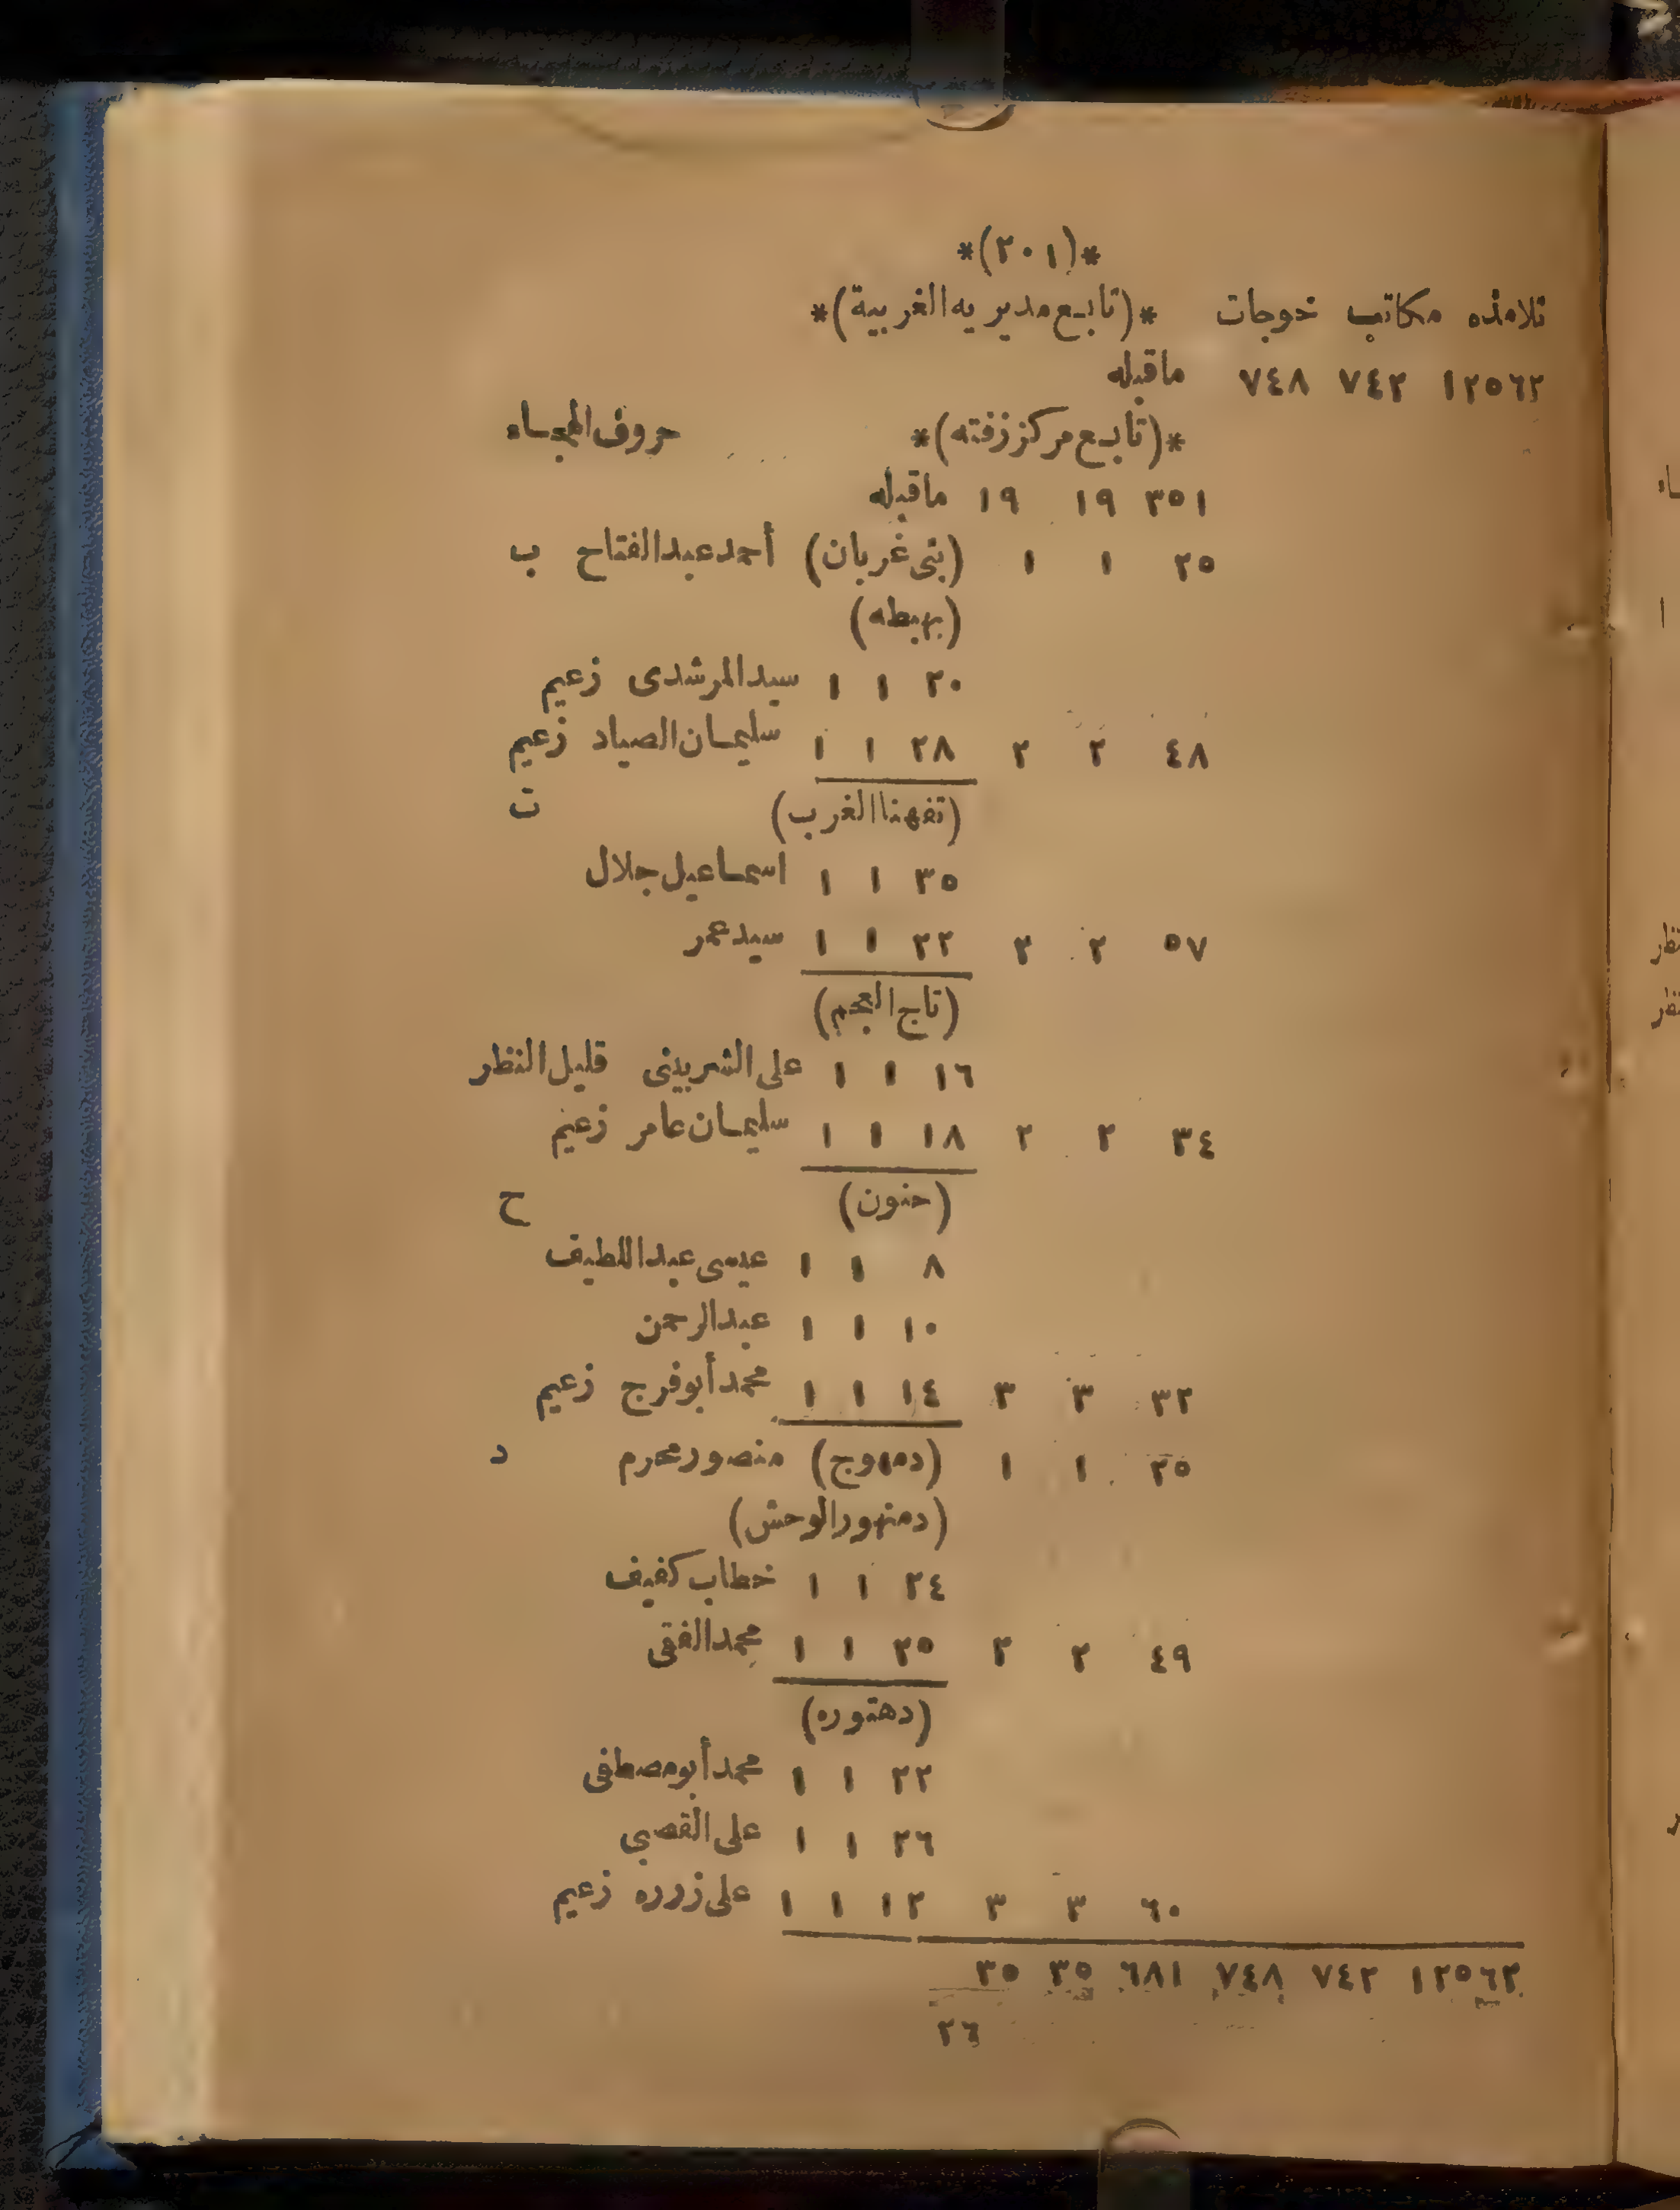 *(٢٠١)*
تلامذه مكاتب خوجات *(تابع مديريه الغربية)*
١٢٥٦٢ ٧٤٢ ٧٤٨ ماقبله
*(تابع مركز زفته)* حروف الهجاء
٣٥١ ١٩ ١٩ ماقبله
٢٥ ١ ١ (بنى غريان) أحمد عبد الفتاح ب
(بهبطه)
٢٠ ١ ١ سيد المرشدى زعيم
٤٨ ٢ ٢ ٢٨ ١ ١ سليمان الصياد زعيم
(تفهنا الغرب) ت
٣٥ ١ ١ اسماعيل جلال
٥٧ ٢ ٢ ٢٢ ١ ١ سيد عمر
(تاج العجم)
١٦ ١ ١ على الشربينى قليل النظر
٣٤ ٢ ٢ ١٨ ١ ١ سليمان عامر زعيم
(حنون) ح
٨ ١ ١ عيسى عبد اللطيف
١٠ ١ ١ عبد الرحمن
٣٢ ٣ ٣ ١٤ ١ ١ محمد أبو فرج زعيم
٢٥ ١ ١ (دمهوج) منصور محرم د
(دمنهور الوحش)
٢٤ ١ ١ خطاب كفيف
٤٩ ٢ ٢ ٢٥ ١ ١ محمد الفقى
(دهتوره)
٢٢ ١ ١ محمد أبو مصطفى
٢٦ ١ ١ على القصبى
٦٠ ٣ ٣ ١٢ ١ ١ على زرره زعيم
١٢٥٦٢ ٧٤٢ ٧٤٨ ٦٨١ ٣٥ ٣٥
٢٦